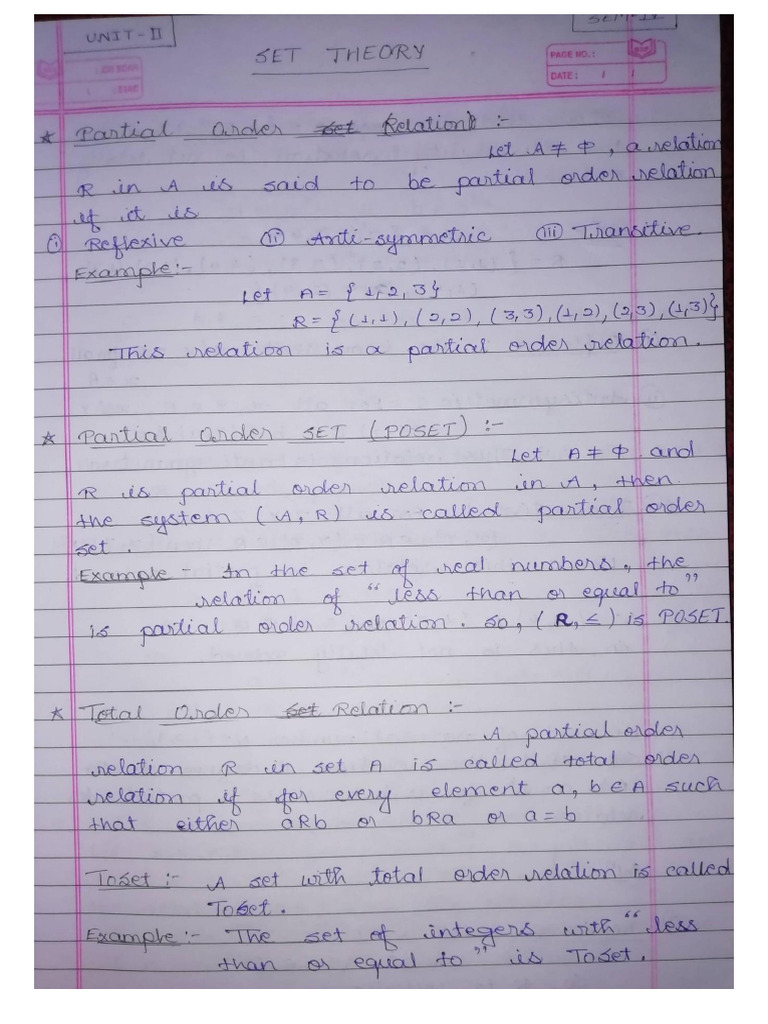 UNIT-II
SEM-II
SET THEORY
PAGE NO.:
DATE: / /
* Partial Order set Relation :-
Let A ≠ Φ, a relation
R in A is said to be partial order relation
if it is
(i) Reflexive (ii) Anti-symmetric (iii) Transitive.
Example:-
Let A = {1,2,3}
R = {(1,1), (2,2), (3,3), (1,2), (2,3), (1,3)}
This relation is a partial order relation.
* Partial Order SET (POSET) :-
Let A ≠ Φ and
R is partial order relation in A, then
the system (A, R) is called partial order
set.
Example - In the set of real numbers, the
relation of "less than or equal to"
is partial order relation. So, (R, ≤) is POSET.
* Total Order set Relation :-
A partial order
relation R in set A is called total order
relation if for every element a, b ∈ A such
that either aRb or bRa or a = b
Toset :- A set with total order relation is called
Toset.
Example:- The set of integers with "less
than or equal to" is Toset.